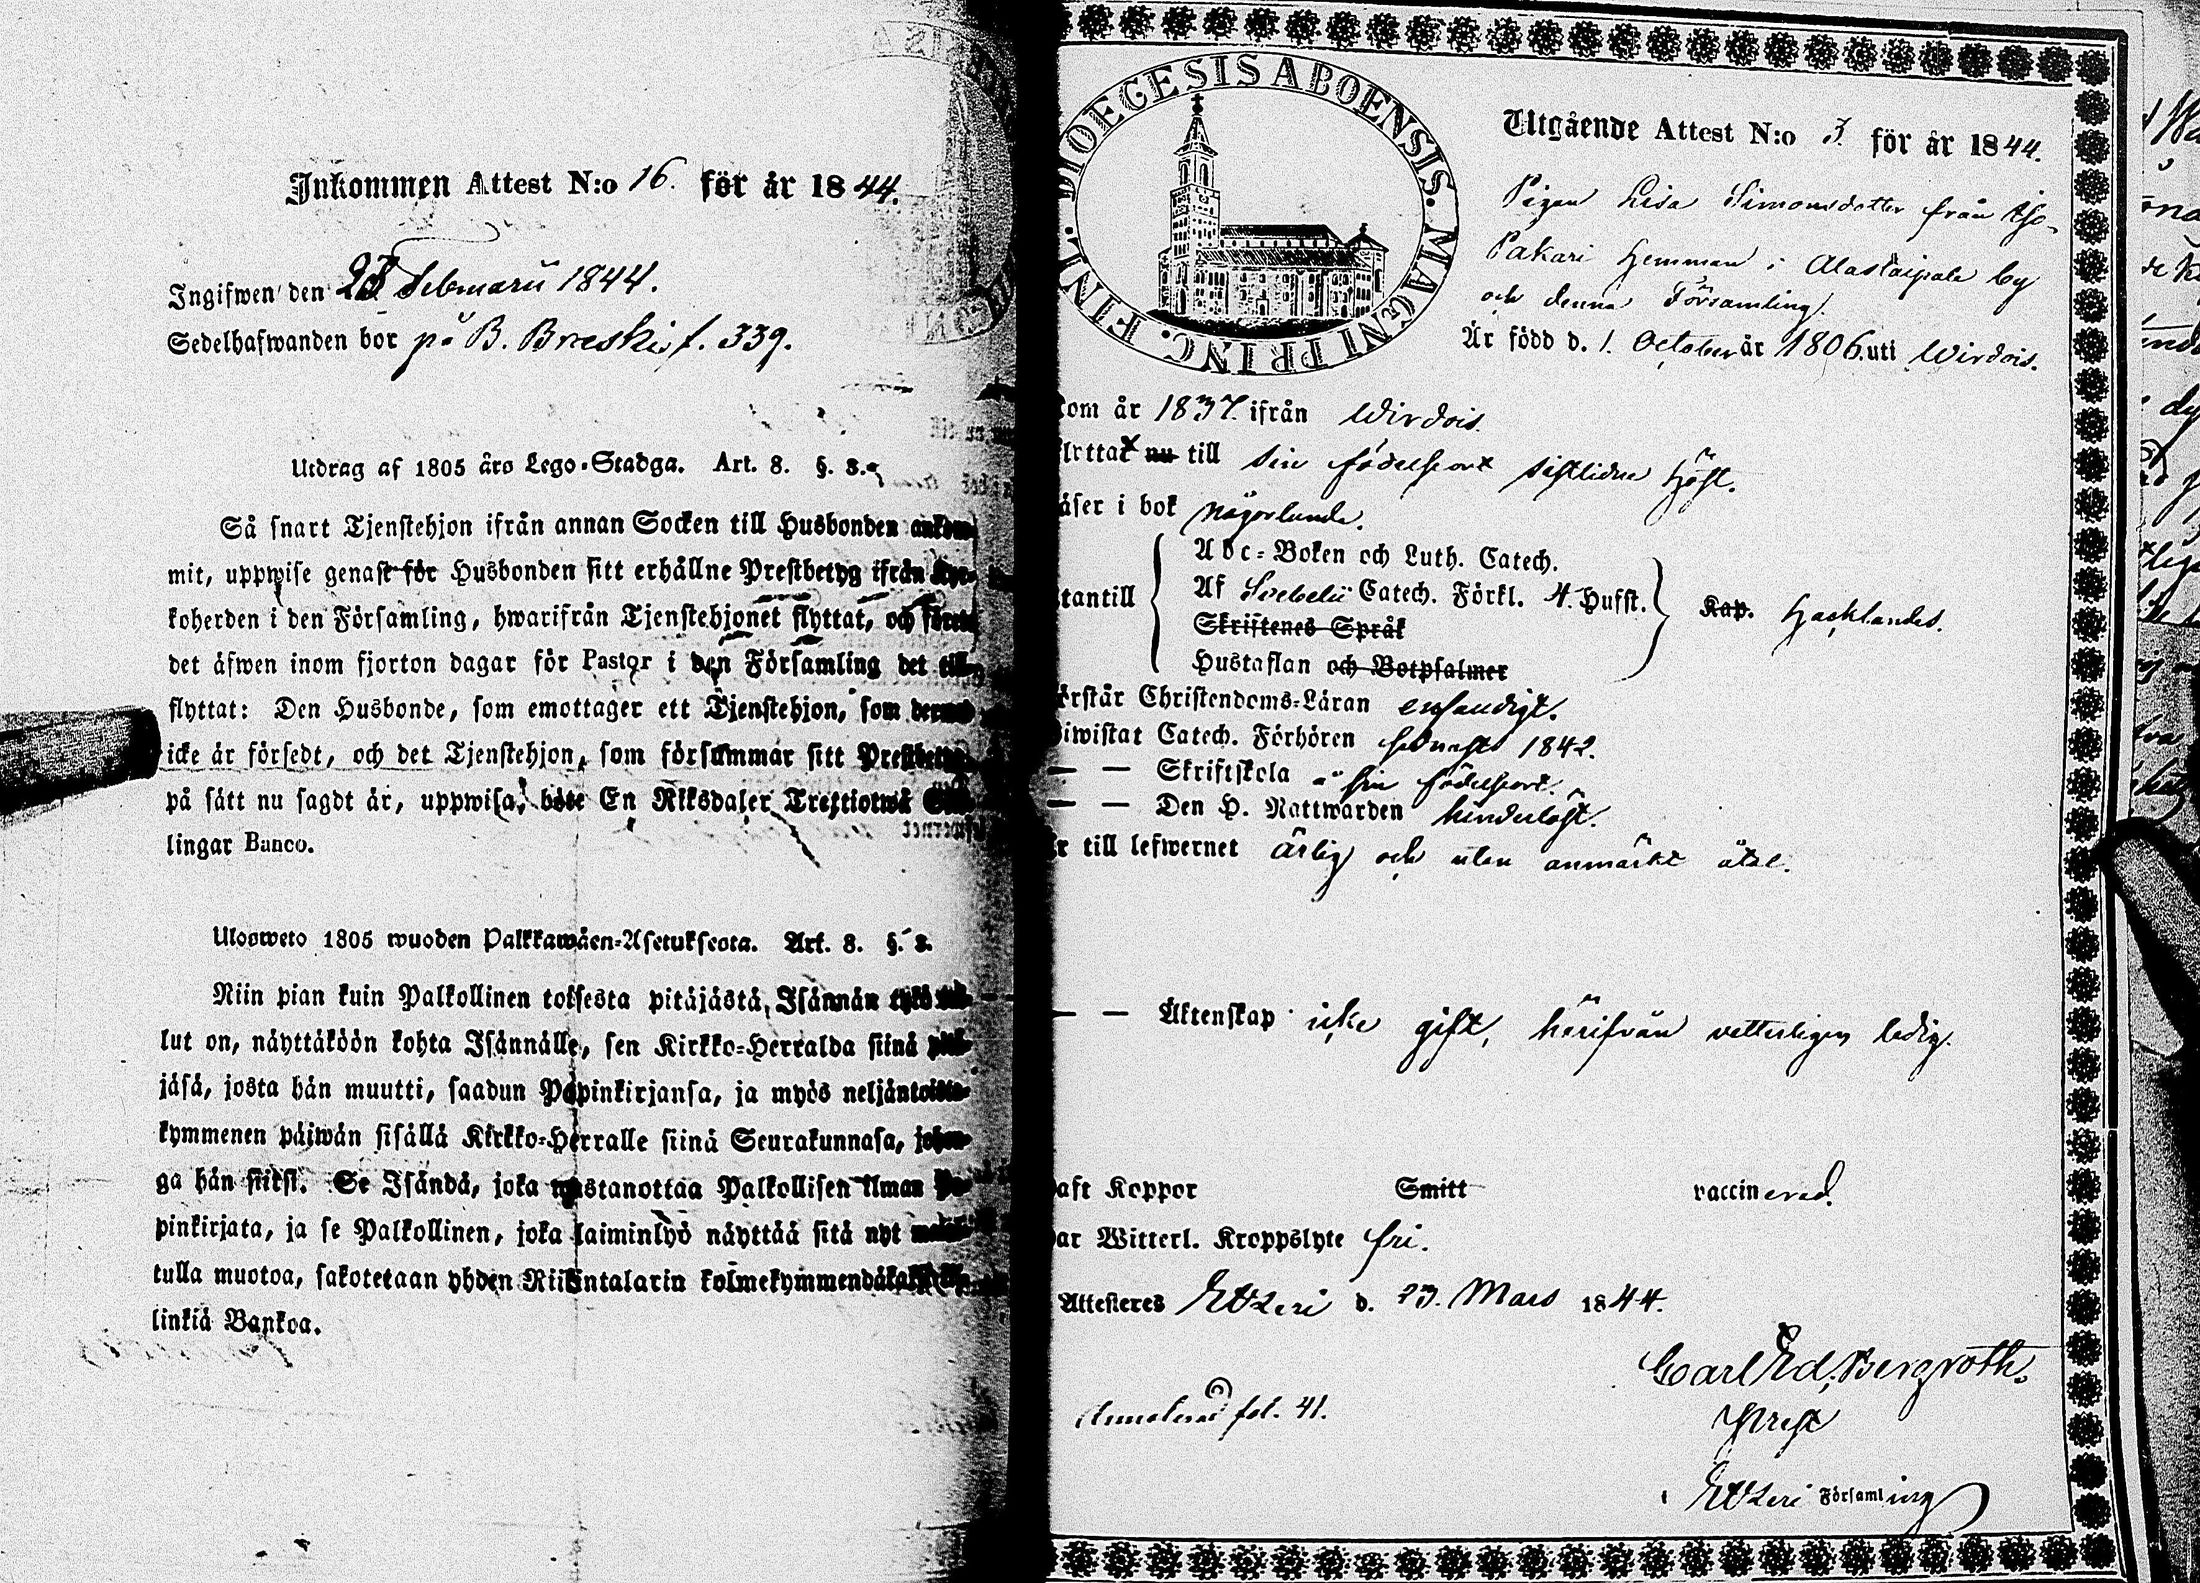 Inkommen Attest N:o 16. för år 1844.
Ingifwen den 23 Februarii 1844.
Sedelhafwanden bor på B. f. 339.
Utdrag af 1805 års Lego-Stadga. Art. 8. §. 8.
Så snart Tjenstehjon ifrån annan Socken till Husbonden ankom-
mit, uppwise genast för Husbonden sitt erhållne Prestbetyg ifrån Kyr-
koherden i den Församling, hwarifrån Tjenstehjonet flyttat, och förete
det äfwen inom fjorton dagar för Pastor i den Församling det till-
flyttat: Den Husbonde, som emottager ett Tjenstehjon, som dermed
icke är försedt, och det Tjenstehjon, som försummar sitt Prestbetyg
på sätt nu sagdt är, uppwisa, böte En Riksdaler Trettiotwå Skil-
lingar Banco.
Ulosweto 1805 wuoden Palkkawäen-Asetuksesta. Art. 8. §. 8.
Niin pian kuin Palkollinen toisesta pitäjästä, Isännän tykö tul-
lut on, näyttäköön kohta Isännälle, sen Kirkko-Herralda siinä pitä-
jäsä, josta hän muutti, saadun Papinkirjansa, ja myös neljäntoista-
kymmenen päiwän sisällä Kirkko-Herralle siinä Seurakunnasa, johon-
ga hän siirsi. Se Isändä, joka wastanottaa Palkollisen ilman Pa-
pinkirjata, ja se Palkollinen, joka laiminlyö näyttää sitä nyt
tulla muotoa, sakotetaan yhden Riikintalarin kolmekymmendäkaksi
linkiä Bankoa.
DIOECESIS ABOENSIS. MAGNI PRINC. FINL.
Utgående Attest N:o 3. för år 1844.
Pigan Lisa Simonsdotter från
Pakari Hemman i by
och denna Församling.
Är född d. 1. October år 1806. uti Wirdois.
kom år 1837. ifrån Wirdois.
flyttat nu till sin födelseort sistlidne Höst.
läser i bok någorlunda.
utantill
Abc-Boken och Luth. Catech.
Af Svebelii Catech. Förkl. H. Hufst.
Skriftenes Språk
Hustaflan och Botpsalmer
Kap. Hacklandes.
förstår Christendoms-Läran enfaldigt.
biwistat Catech. Förhören sednast 1842.
— — Skriftskola å sin födelseort.
— — Den H. Nattwarden hinderlöst.
Är till lefwernet ärlig och utan anmärkt åtal.
— — Äktenskap icke gift, härifrån vetterligen ledig.
haft Koppor Smitt vaccinerad.
har Witterl. Kroppslyte fri.
Attesteras Etzeri d. 23. Mars 1844.
Carl Ed. Bergroth.
Prest
i Etzeri Församling
Annoterad fol. 41.